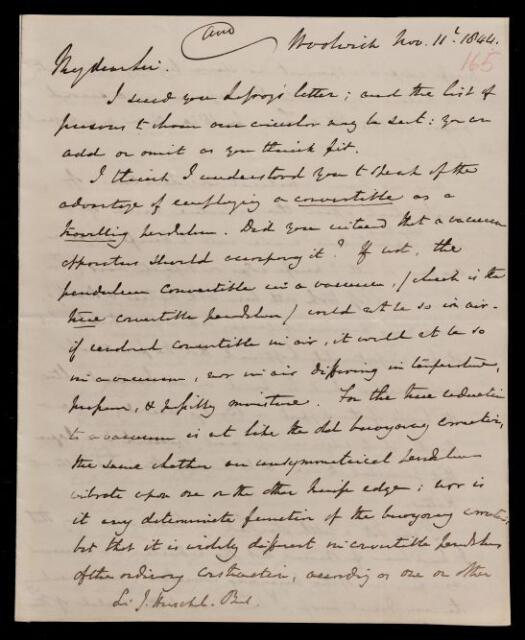 and Woolwich Nov. 11th 1844.
165
My dear Sir.
I send you Lefroy's letter; and the list of
persons to whom our circular may be sent: you can
add or omit as you think fit.
I think I understood you to speak of the
advantage of employing a convertible as a
travelling pendulum. Did you intend that a vacuum
apparatus should accompany it? If not, the
pendulum convertible in a vacuum, (which is the
true convertible pendulum) would not be so in air -
if rendered convertible in air, it would not be so
in a vacuum, nor in air differing in temperature,
pressure, & possibly moisture. For the true reduction
to a vacuum is not like the old buoyancy correction,
the same whether an unsymmetrical pendulum
vibrate upon one or the other knife edge; nor is
it any determinate function of the buoyancy correction,
but that it is widely different in convertible pendulums
of the ordinary construction, according as one or other
Sir J. Herschel. Bart.